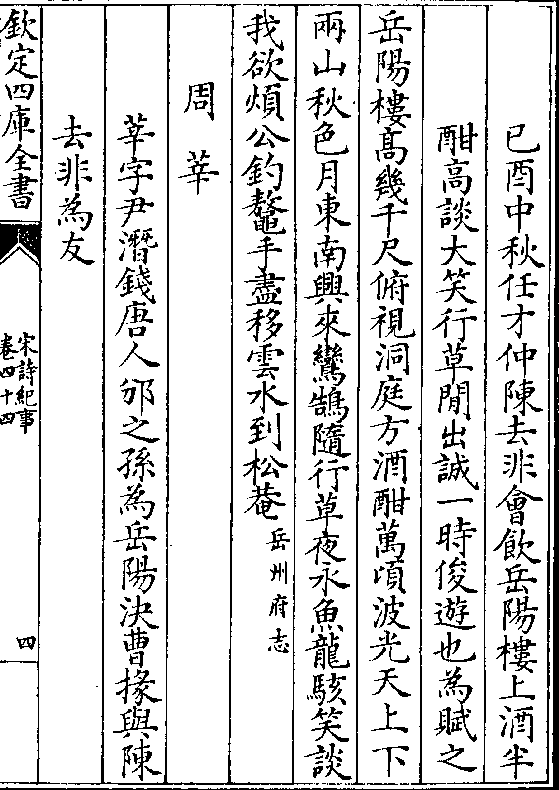 已酉中秋任才仲陳去非會飲岳陽樓上酒半
酣高談大笑行草間出誠一時俊遊也為賦之
岳陽樓髙幾千尺俯視洞庭方酒酣萬頃波光天上下
兩山秋色月東南興來鸞鵠隨行草夜永魚龍駭笑談
我欲煩公釣鼇手盡移雲水到松菴岳州府志
周莘
莘字尹潛錢唐人邠之孫為岳陽決曹掾與陳
去非為友
欽定四庫全書
宋詩紀事
卷四十四
四